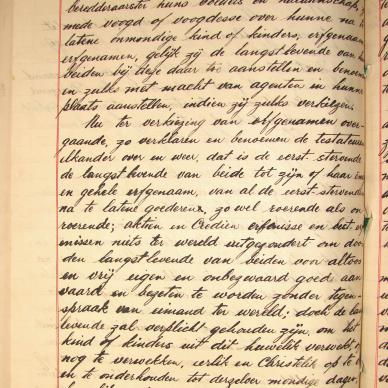 beredderaarster huns boedels en nalatenschap,
mede voogd of voogdesse over hunne na te
latene onmondige kind of kinders, erfgenaam
erfgenamen, gelijk zij de langstlevende van hun
beiden bij deze daar toe aanstellen en benoemen
en zulks met macht van agenten in hunne
plaats aanstellen, indien zij zulks verkiezen.
Nu ter verkiezing van erfgenamen over-
gaande, zo verklaren en benoemen de testateuren
elkander over en weer, dat is de eerst-stervende
de langstlevende van beide tot zijn of haar
en gehele erfgenaam, van al de eerst-stervende
na te latene goederen, zo wel roerende als on-
roerende; aktien en Credien erfenisse en
missen niets ter wereld uitgezondert om door
den langstlevende van beiden voor altoos
en vrij eigen en onbezwaard goed aan-
vaard en bezeten te worden zonder tegen-
spraak van iemand ter wereld; doch de langst-
levende zal verplicht gehouden zijn, om het
kind of kinders uit dit huwelik verwekt of
nog te verwekken, eerlik en Christelik op te
en te onderhouden tot derzelver mondige dagen